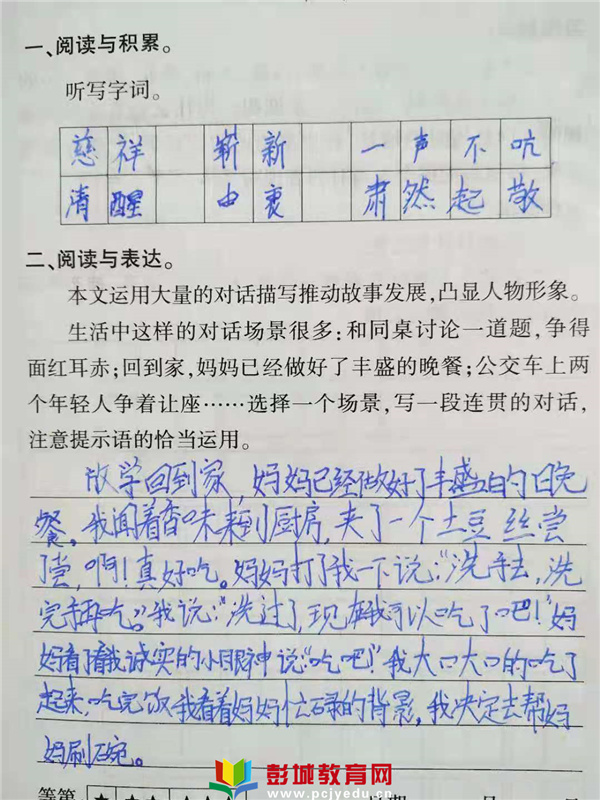 一、阅读与积累。
听写字词。
慈祥 崭新 一声不吭
清醒 由衷 肃然起敬
二、阅读与表达。
本文运用大量的对话描写推动故事发展,凸显人物形象。
生活中这样的对话场景很多:和同桌讨论一道题,争得
面红耳赤;回到家,妈妈已经做好了丰盛的晚餐;公交车上两
个年轻人争着让座……选择一个场景,写一段连贯的对话,
注意提示语的恰当运用。
放学回到家,妈妈已经做好了丰盛的晚
餐。我闻着香味来到厨房,夹了一个土豆丝尝
了尝,啊!真好吃。妈妈打了我一下说:“洗手去,洗
完手再吃。”我说:“洗过了,现在我可以吃了吧!”妈
妈看了看我诚实的小眼神说:“吃吧!”我大口大口的吃了
起来,吃完饭,我看着妈妈忙碌的背影,我决定去帮妈
妈刷碗。
等第 ★ ★ ★ ★ ★
彭城教育网
www.pcjyedu.cn